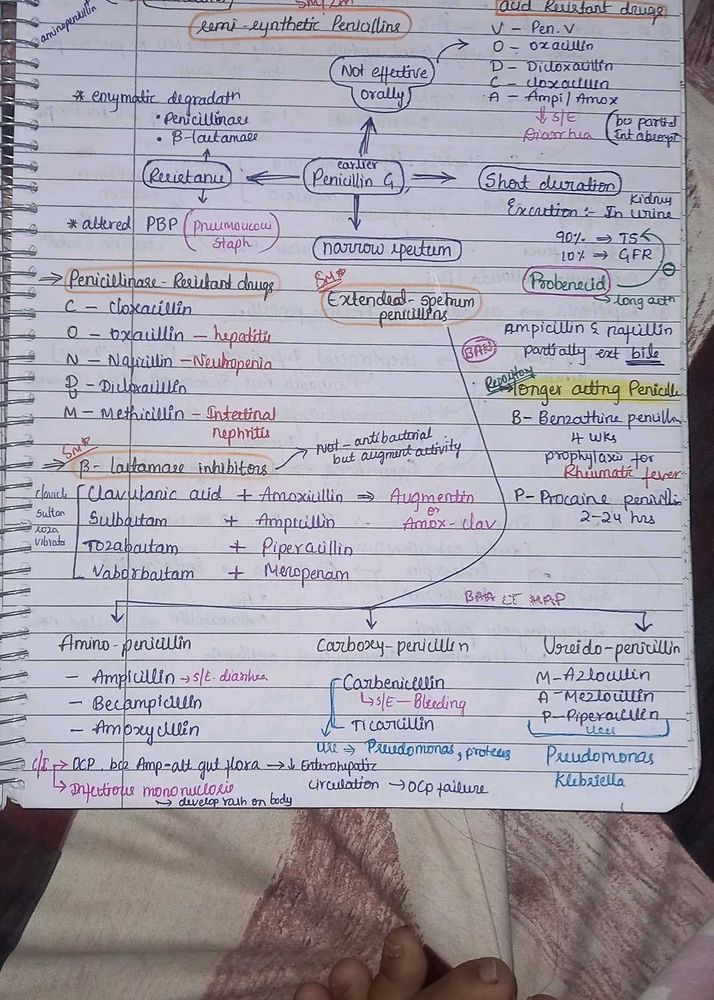 aminopenicillin
semi-synthetic Penicillins
acid Resistant drugs
V - Pen. V
O - oxacillin
D - Dicloxacillin
C - cloxacillin
A - Ampi/Amox
↓ S/E
Diarrhea
(bcz partial
Int absorpt
Not effective
orally
* enzymatic degradatn
• Penicillinase
• β-lactamase
Resistance
earlier
Penicillin G
Short duration
* altered PBP (Pneumococci
staph)
narrow spectum
Excretion :- In urine
Kidney
90% ⇒ TS
10% ⇒ GFR
Probenecid
→ long actn
Ampicillin & nafcillin
partially ext bile
⇒ Penicillinase-Resistant drugs
C - Cloxacillin
O - Oxacillin - hepatitis
N - Nafcillin - Neutropenia
D - Dicloxacillin
M - Methicillin - Intestinal
nephritis
SM*
Extended-spectrum
penicillins
BAN
Repository
→ longer acting Penicille
B- Benzathine penicilln
4 wks
prophylaxis for
Rheumatic fever
P- Procaine penicilli
2-24 hrs
SM*
⇒ β- lactamase inhibitors
Not - antibacterial
but augment activity
clavicle
sultan
toza
vibrato
Clavulanic acid + Amoxicillin ⇒ Augmentin
or
Amox-clav
Sulbactam + Ampicillin
Tozabactam + Piperacillin
Vaborbactam + Meropenam
Amino-penicillin
- Ampicillin → S/E- diarrhea
- Becampicillin
- Amoxycillin
Carboxy-penicillin
Carbenicillin
↳ S/E - Bleeding
Ticarcillin
use → Pseudomonas, proteus
Ureido-penicillin
M-Azlocillin
A-Mezlocillin
P-Piperacillin
uses
Pseudomonas
Klebsiella
C/I → OCP bcz Amp-alt gut flora → ↓ Enterohepatic
circulation → OCP failure
→ Infectious mononucleosis
→ develop rash on body